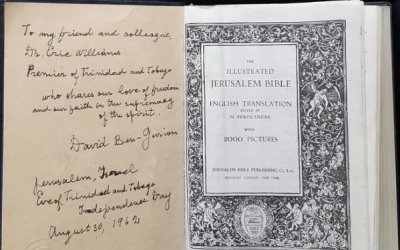 To my friend and colleague,
Dr. Eric Williams
Premier of Trinidad and Tobago
who shares our love of freedom
and our faith in the supremacy
of the spirit.
David Ben-Gurion
Jerusalem, Israel
Eve of Trinidad and Tobago
Independence Day
August 30, 1962
THE
ILLUSTRATED
JERUSALEM BIBLE
ENGLISH TRANSLATION
EDITED BY
M. FRIEDLANDER
WITH
2000 PICTURES
JERUSALEM BIBLE PUBLISHING Co. Ltd.
JERUSALEM - LONDON - NEW YORK